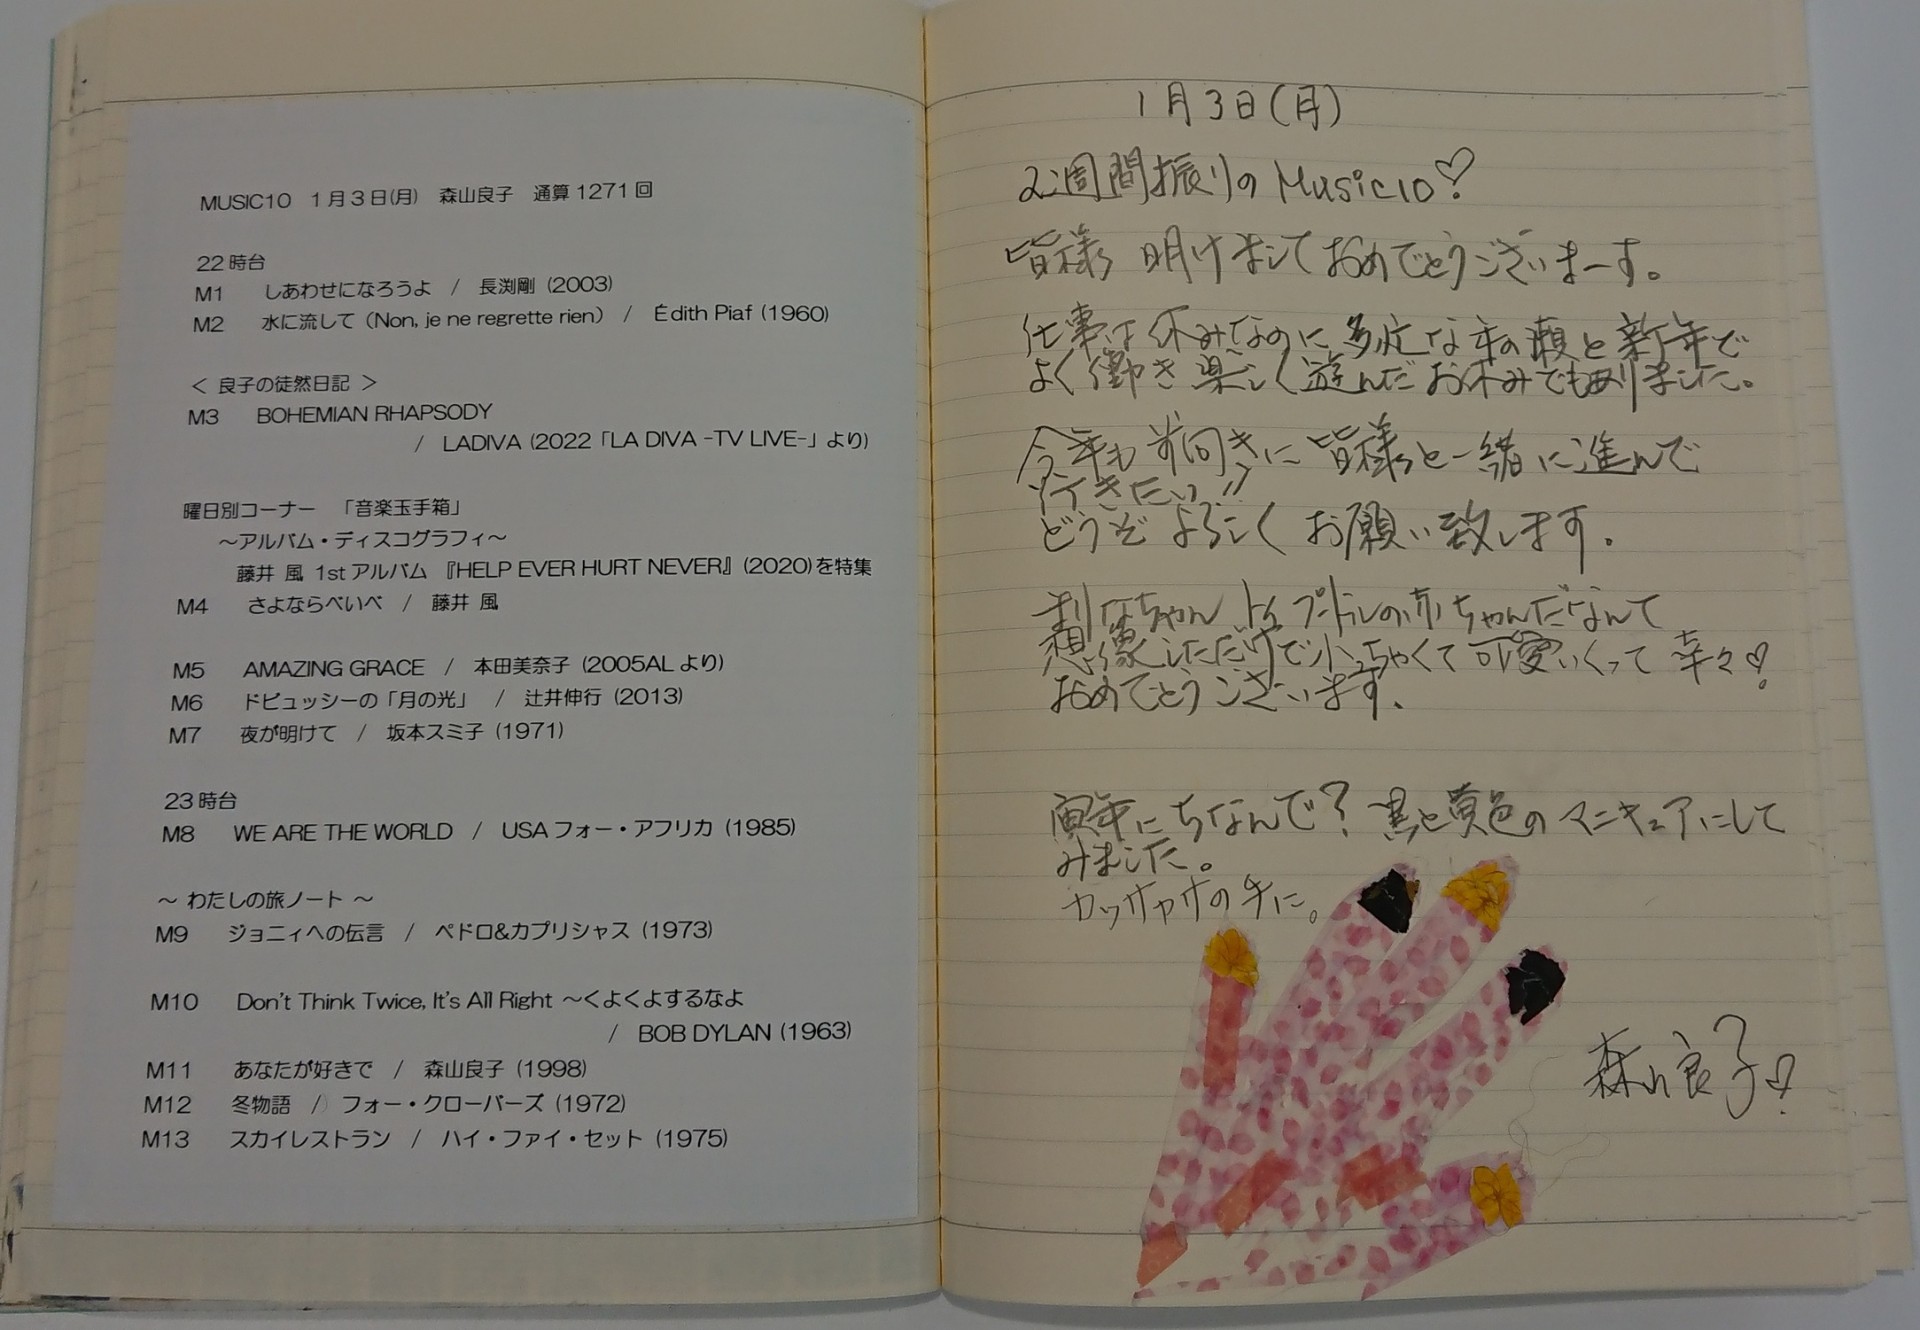 MUSIC10　1月3日(月)　森山良子　通算1271回
22時台
M1　しあわせになろうよ　/　長渕剛 (2003)
M2　水に流して（Non, je ne regrette rien）　/　Édith Piaf (1960)
＜ 良子の徒然日記 ＞
M3　BOHEMIAN RHAPSODY
/　LADIVA (2022「LA DIVA -TV LIVE-」より)
曜日別コーナー　「音楽玉手箱」
～アルバム・ディスコグラフィ～
藤井 風 1stアルバム 『HELP EVER HURT NEVER』(2020)を特集
M4　さよならべいべ　/　藤井 風
M5　AMAZING GRACE　/　本田美奈子 (2005ALより)
M6　ドビュッシーの「月の光」　/　辻井伸行 (2013)
M7　夜が明けて　/　坂本スミ子 (1971)
23時台
M8　WE ARE THE WORLD　/　USAフォー・アフリカ (1985)
～ わたしの旅ノート ～
M9　ジョニィへの伝言　/　ペドロ&カプリシャス (1973)
M10　Don't Think Twice, It's All Right ～くよくよするなよ
/　BOB DYLAN (1963)
M11　あなたが好きで　/　森山良子 (1998)
M12　冬物語　/　フォー・クローバーズ (1972)
M13　スカイレストラン　/　ハイ・ファイ・セット (1975)
1月3日(月)
2週間振りのMusic10♡!
皆様 明けましておめでとうございまーす。
仕事は休みなのに多忙な年の瀬と新年で
よく働き楽しく遊んだお休みでもありました。
今年も前向きに皆様と一緒に進んで
行きたい!!
どうぞよろしくお願い致します。
ちゃん トイプードルの赤ちゃんだなんて
想像しただけで小っちゃくて可愛いくって 幸々♡!
おめでとうございます。
寅年にちなんで? 黒と黄色のマニキュアにして
みました。
カッサカサの手に。
森山良子♡!